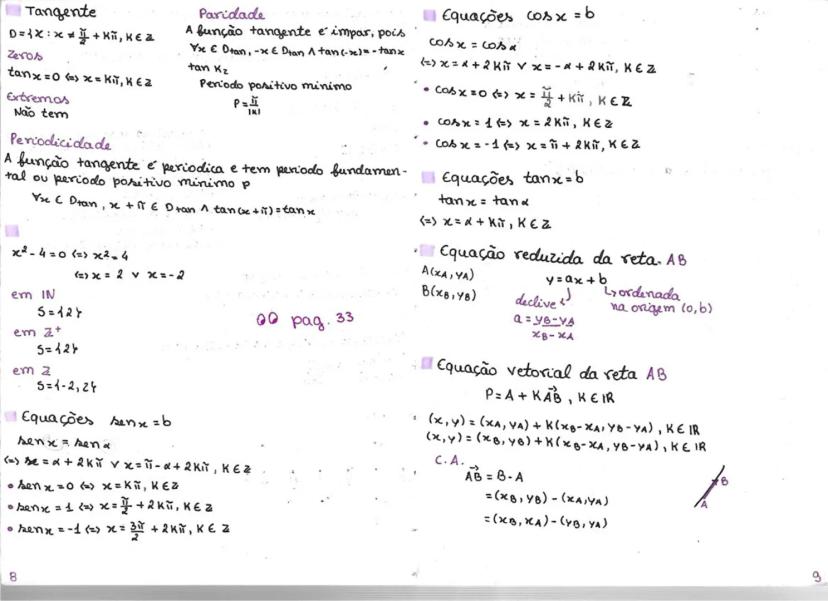 Tangente
D={x: x ≠ π/2 + Kπ, K ∈ Z
Zeros
tan x = 0 (=) x = Kπ, K ∈ Z
Extremos
Não tem
Paridade
A função tangente é impar, pois
∀x ∈ Dtan, -x ∈ Dtan ∧ tan(-x) = -tan x
tan Kx
Período positivo mínimo
P = π/|K|
Periodicidade
A função tangente é periodica e tem periodo fundamen-
tal ou período positivo mínimo p
∀x ∈ Dtan, x + π ∈ Dtan ∧ tan(x+π) = tan x
x² - 4 = 0 (=) x² = 4
(=) x = 2 ∨ x = -2
em IN
S = {2}
em Z⁺
S = {2}
em Z
S = {-2, 2}
pag. 33
Equações sen x = b
sen x = sen α
(=) x = α + 2Kπ ∨ x = π - α + 2Kπ, K ∈ Z
• sen x = 0 (=) x = Kπ, K ∈ Z
• sen x = 1 (=) x = π/2 + 2Kπ, K ∈ Z
• sen x = -1 (=) x = 3π/2 + 2Kπ, K ∈ Z
8
Equações cos x = b
cos x = cos α
(=) x = α + 2Kπ ∨ x = -α + 2Kπ, K ∈ Z
• cos x = 0 (=) x = π/2 + Kπ, K ∈ Z
• cos x = 1 (=) x = 2Kπ, K ∈ Z
• cos x = -1 (=) x = π + 2Kπ, K ∈ Z
Equações tan x = b
tan x = tan α
(=) x = α + Kπ, K ∈ Z
Equação reduzida da reta AB
A(xA, yA)
B(xB, yB)
y = ax + b
declive
a = yB - yA / xB - xA
ordenada
na origem (0, b)
Equação vetorial da reta AB
P = A + K AB, K ∈ IR
(x, y) = (xA, yA) + K(xB - xA, yB - yA), K ∈ IR
(x, y) = (xB, yB) + K(xB - xA, yB - yA), K ∈ IR
C.A.
AB = B - A
= (xB, yB) - (xA, yA)
= (xB, xA) - (yB, yA)
B
A
9